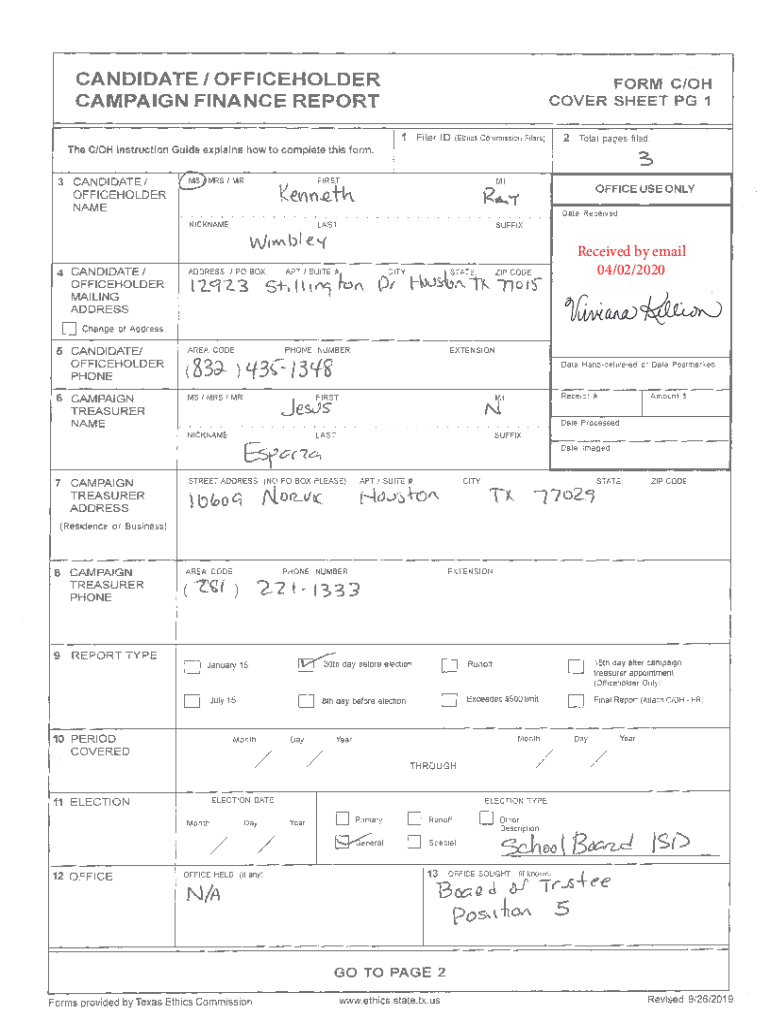 CANDIDATE / OFFICEHOLDER
CAMPAIGN FINANCE REPORT
FORM C/OH
COVER SHEET PG 1
The C/OH Instruction Guide explains how to complete this form.
1 Filer ID (Ethics Commission Filers)
2 Total pages filed:
3
3 CANDIDATE /
OFFICEHOLDER
NAME
MS / MRS / MR FIRST MI
Kenneth Ray
NICKNAME LAST SUFFIX
Wimbley
OFFICE USE ONLY
Date Received
Received by email
04/02/2020
Viviana Killion
4 CANDIDATE /
OFFICEHOLDER
MAILING
ADDRESS
Change of Address
ADDRESS / PO BOX; APT / SUITE #; CITY; STATE; ZIP CODE
12923 Stillington Dr Houston TX 77015
5 CANDIDATE/
OFFICEHOLDER
PHONE
AREA CODE PHONE NUMBER EXTENSION
(832) 435-1348
Date Hand-delivered or Date Postmarked
6 CAMPAIGN
TREASURER
NAME
MS / MRS / MR FIRST MI
Jesus N
NICKNAME LAST SUFFIX
Esparza
Receipt # Amount $
Date Processed
Date Imaged
7 CAMPAIGN
TREASURER
ADDRESS
(Residence or Business)
STREET ADDRESS (NO PO BOX PLEASE); APT / SUITE #; CITY; STATE; ZIP CODE
10609 Houston TX 77029
8 CAMPAIGN
TREASURER
PHONE
AREA CODE PHONE NUMBER EXTENSION
(281) 221-1333
9 REPORT TYPE
January 15
30th day before election
Runoff
15th day after campaign
treasurer appointment
(Officeholder Only)
July 15
8th day before election
Exceeded $500 limit
Final Report (Attach C/OH - FR)
10 PERIOD
COVERED
Month Day Year
/ /
THROUGH
Month Day Year
/ /
11 ELECTION
ELECTION DATE
Month Day Year
/ /
ELECTION TYPE
Primary
Runoff
Other
Description
General
Special
School Board ISD
12 OFFICE
OFFICE HELD (if any)
N/A
13 OFFICE SOUGHT (if known)
Board of Trustee
Position 5
GO TO PAGE 2
Forms provided by Texas Ethics Commission
www.ethics.state.tx.us
Revised 9/26/2019